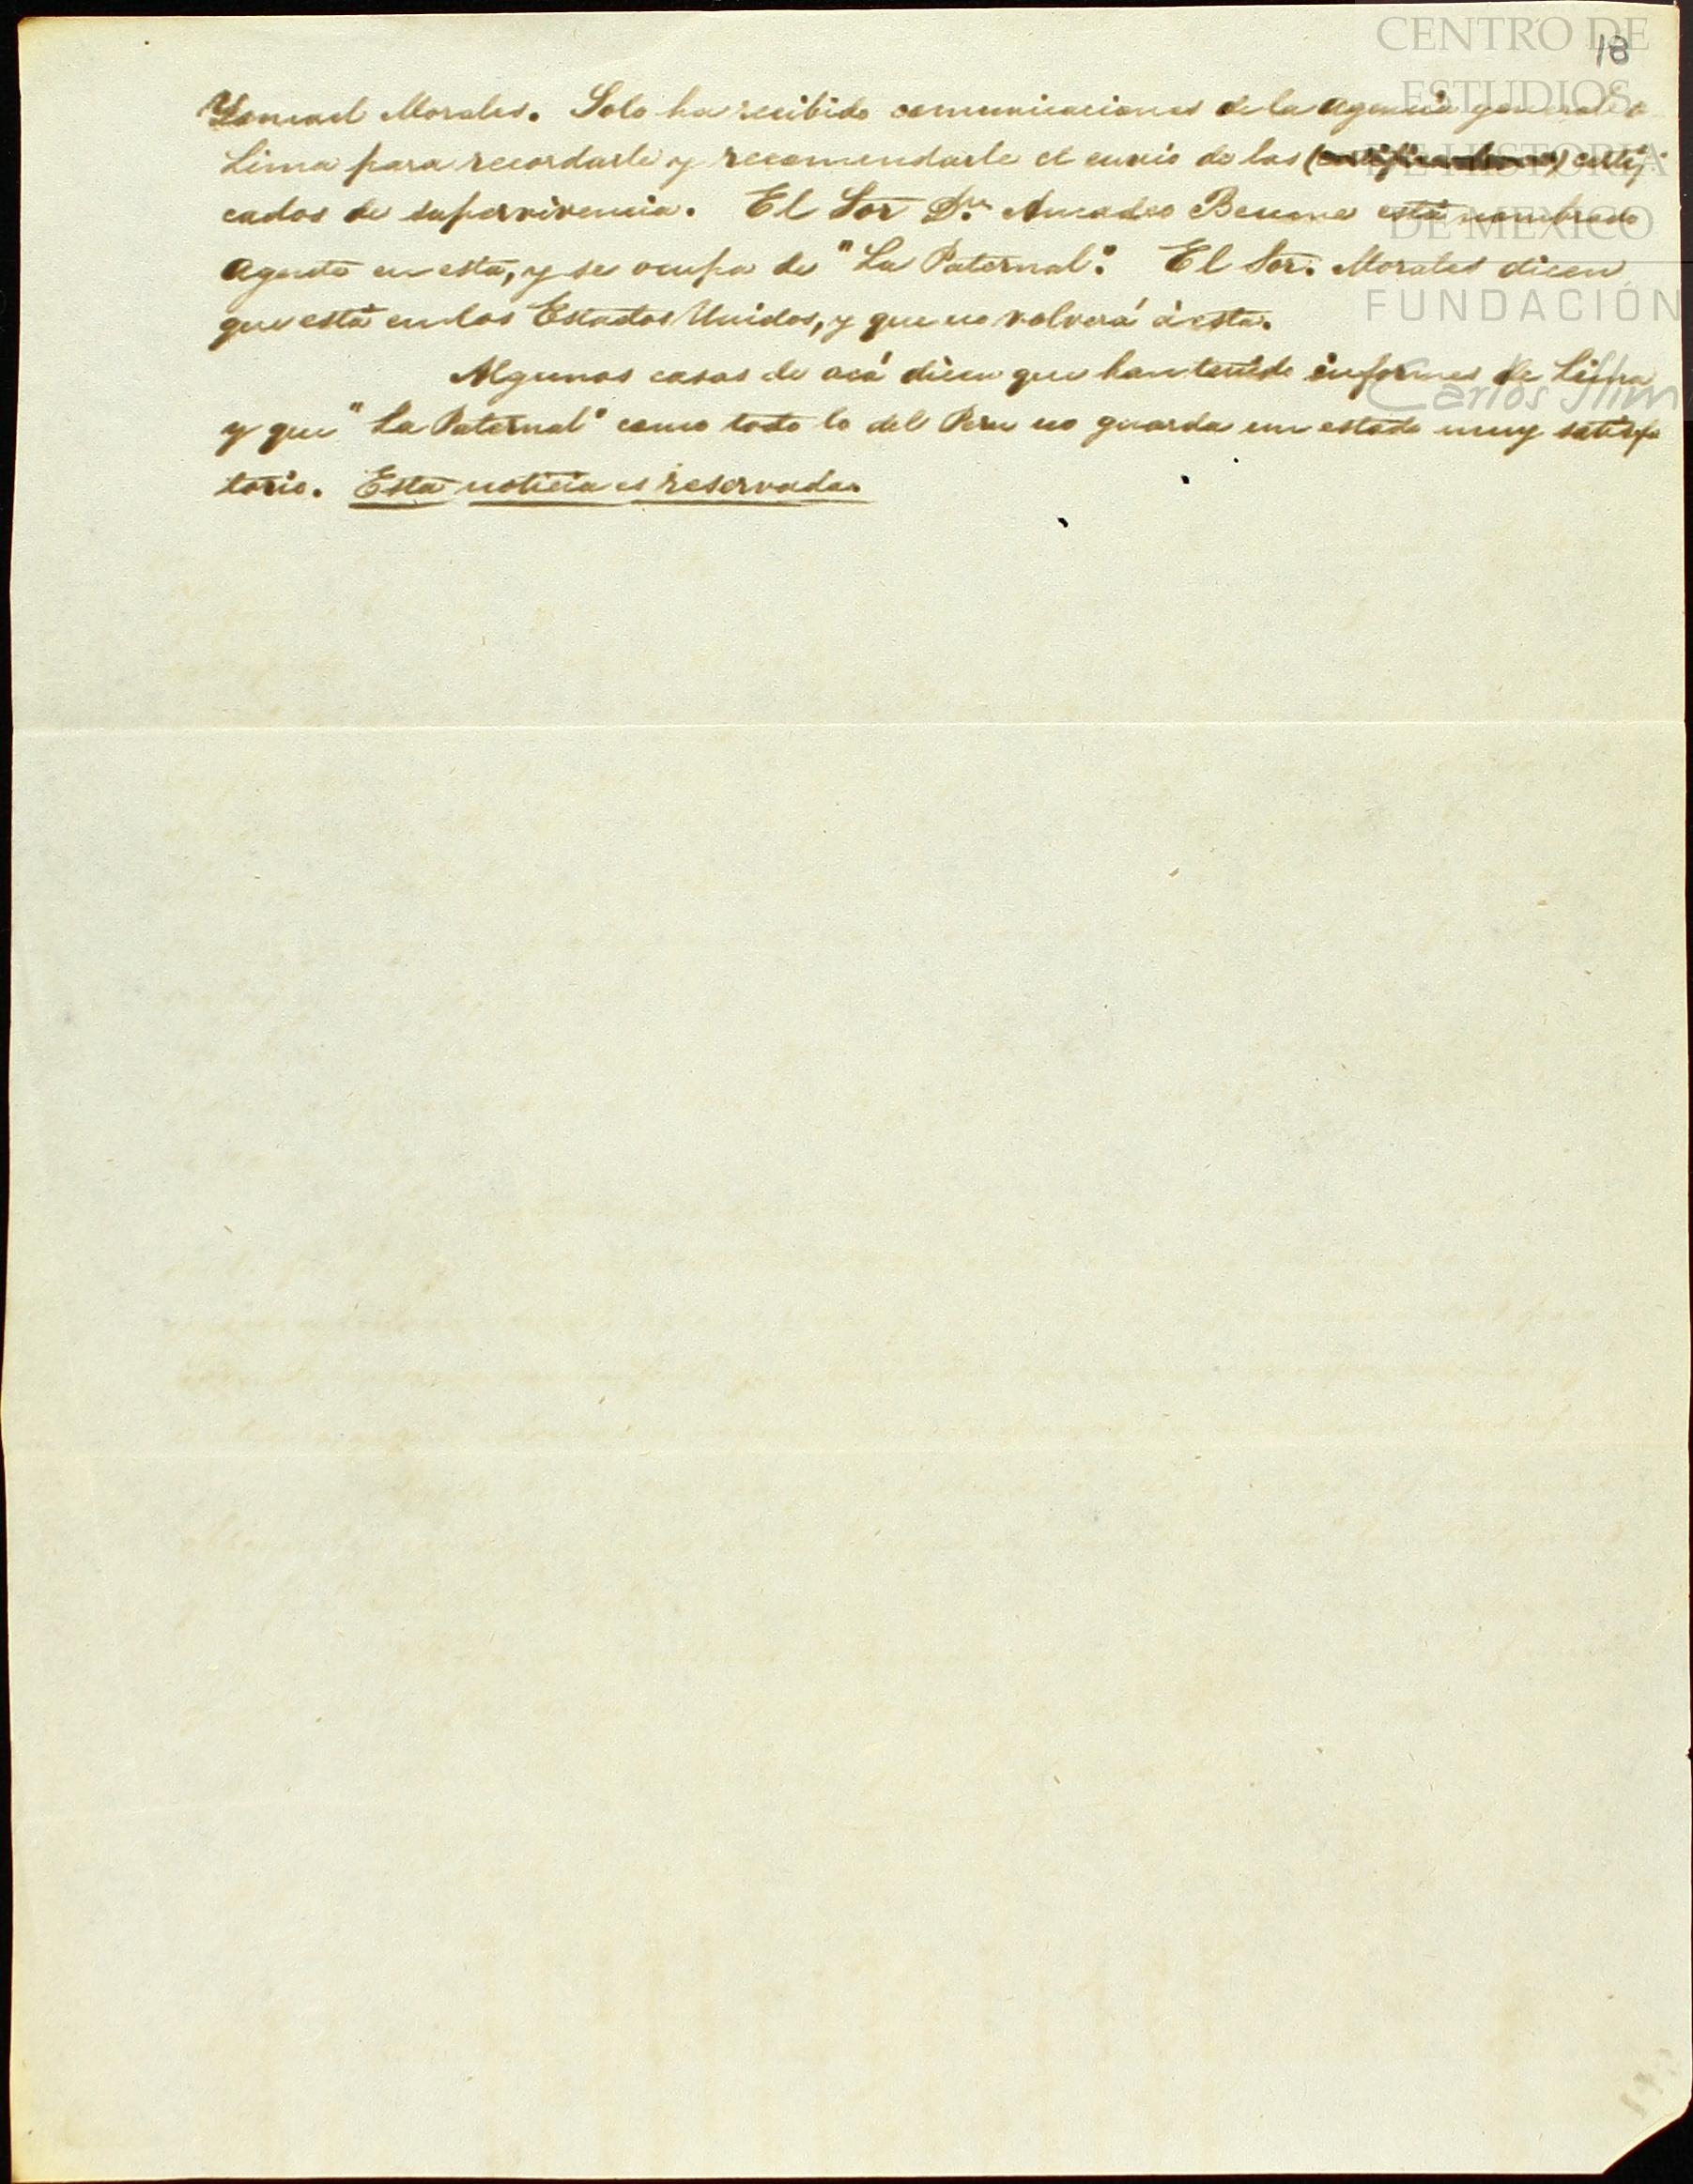 18
Morales. Solo ha recibido comunicaciones de la agencia general
Lima para recordarle y recomendarle el envio de los certifi-
cados de supervivencia. El Sor Dn. Amadeo está nombrado
Agente en esta, y se ocupa de "La Paternal". El Sor. Morales dicen
que está en los Estados Unidos, y que no volverá á esta.
Algunas casas de acá dicen que han tenido informes de Lima
y que "La Paternal" como todo lo del Peru no guarda un estado muy satisfa
torio. Esta noticia es reservada.
CENTRO DE
ESTUDIOS
DE HISTORIA
DE MÉXICO
FUNDACIÓN
Carlos Slim